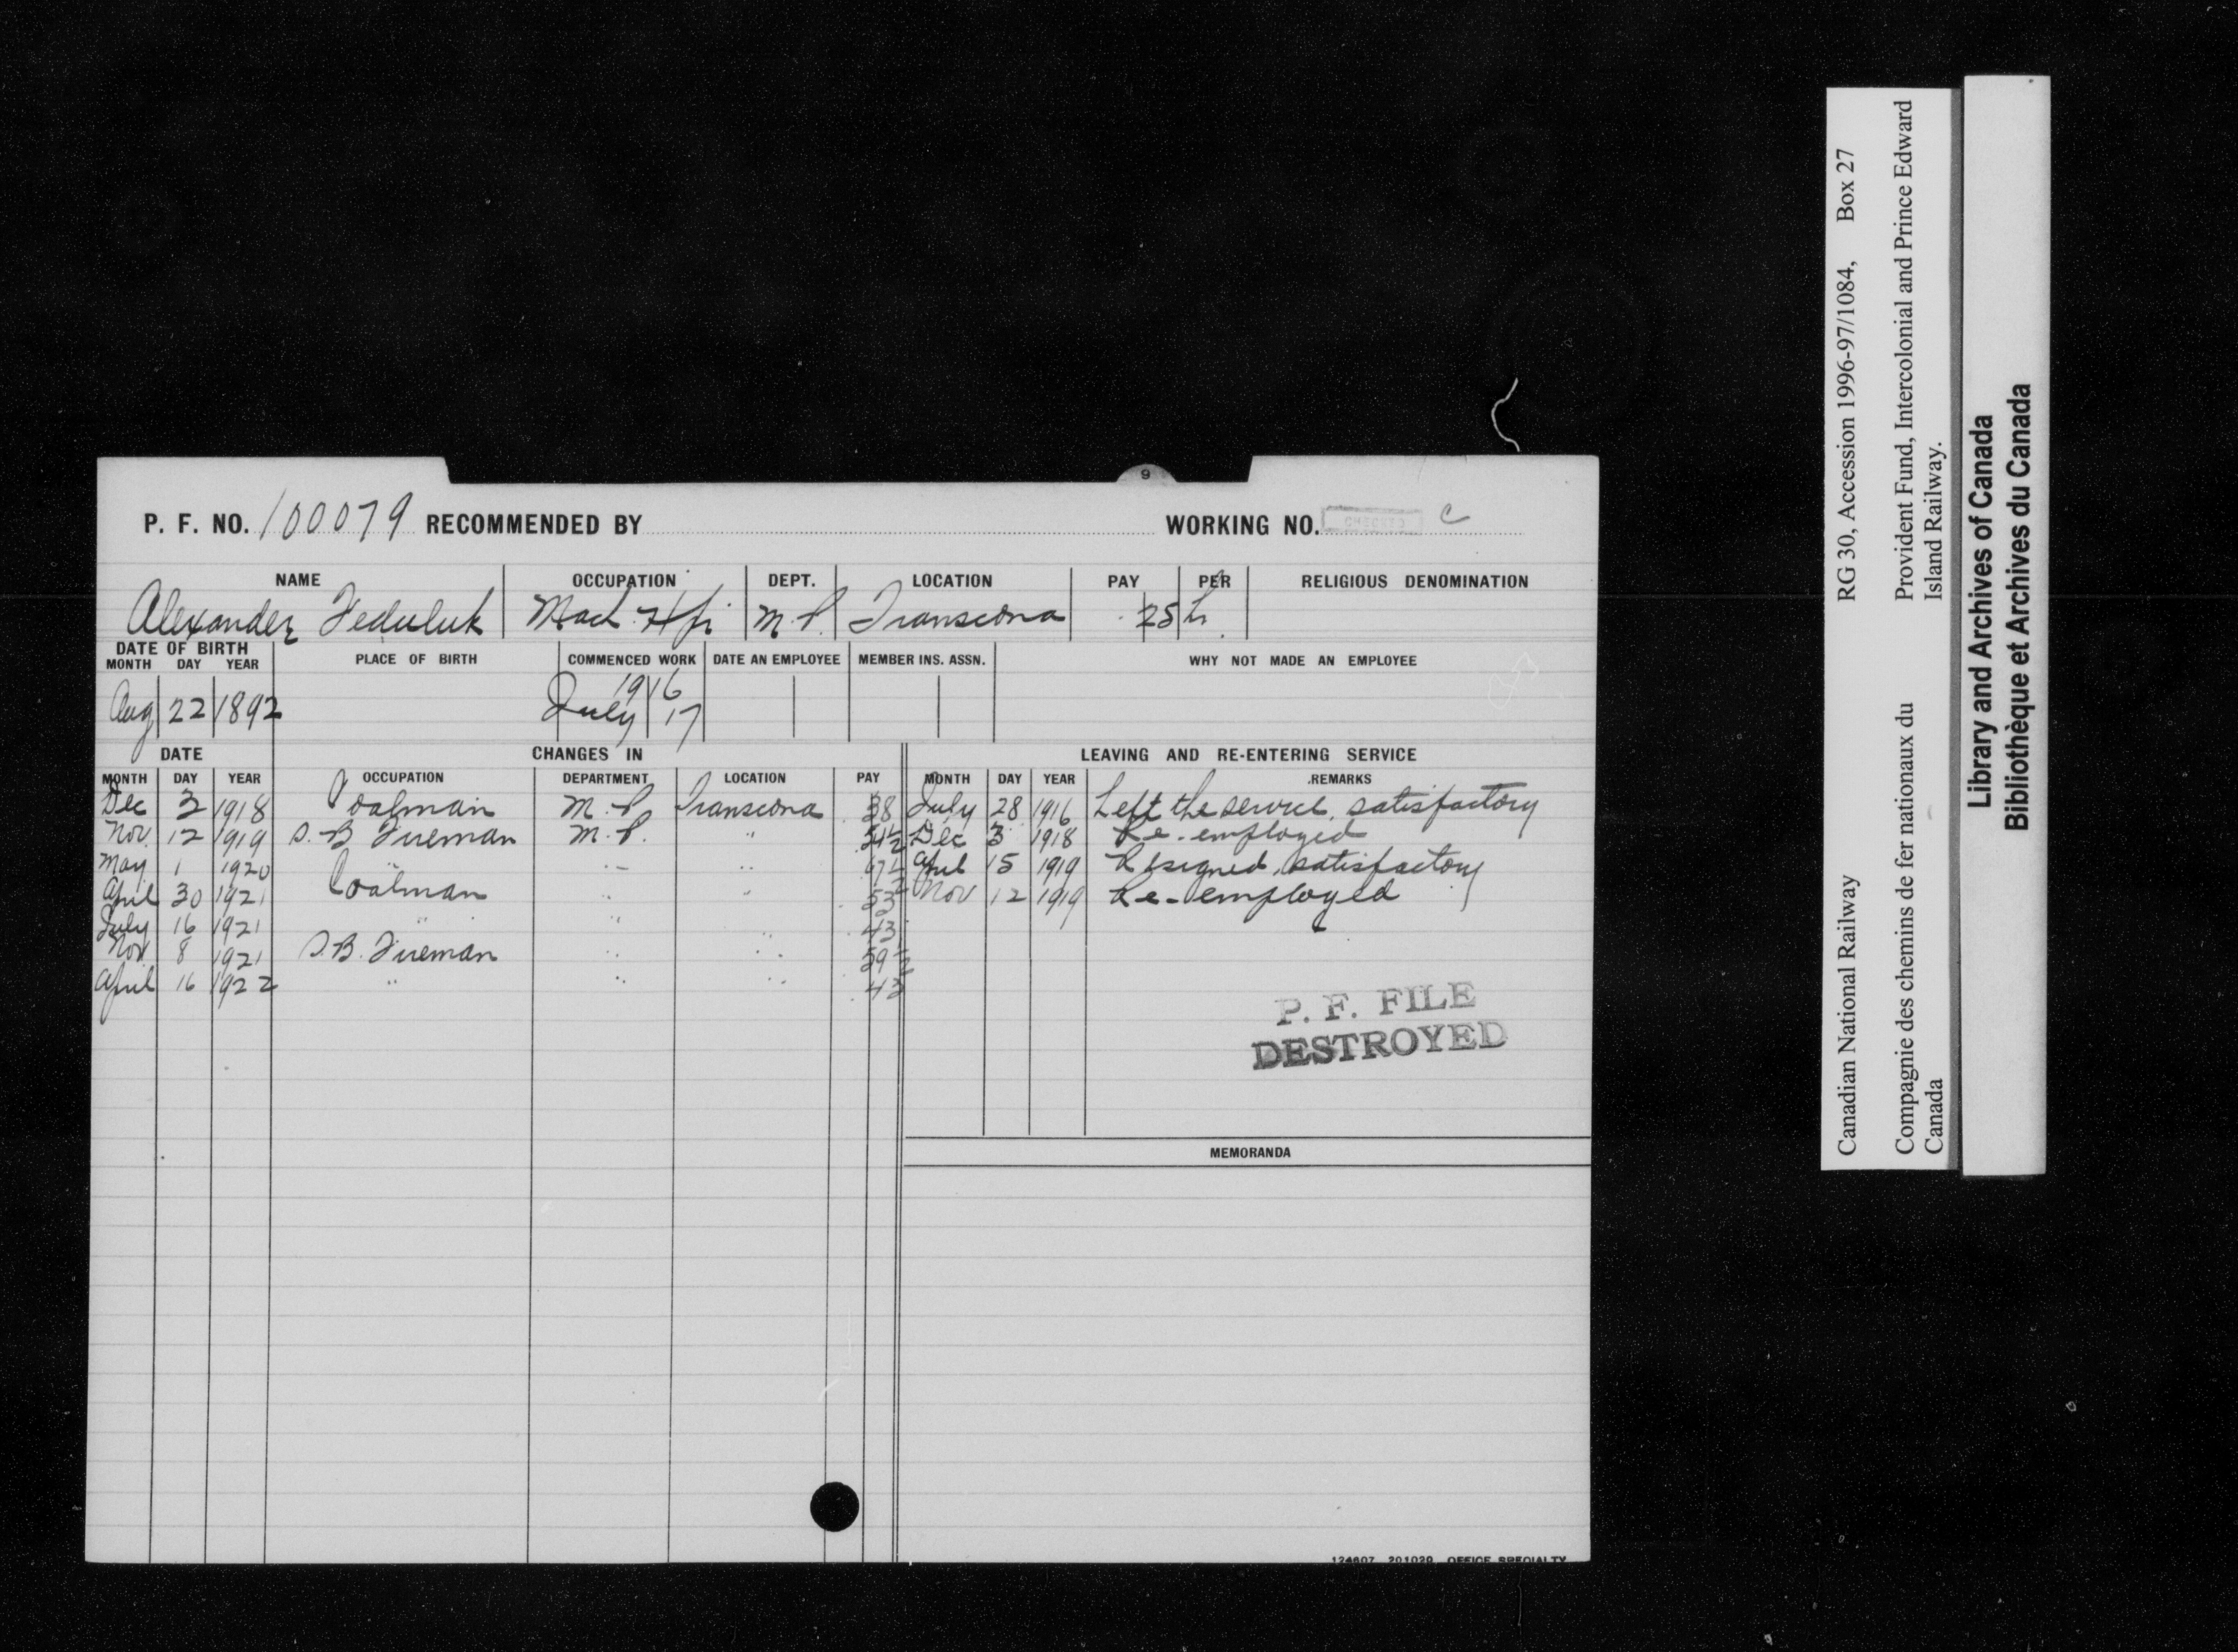 9
P. F. NO. 100079 RECOMMENDED BY WORKING NO. CHECKED C
NAME OCCUPATION DEPT. LOCATION PAY PER RELIGIOUS DENOMINATION
Alexander Feduluk Mach. Hpr M.P. Transcona .25 hr.
DATE OF BIRTH
MONTH DAY YEAR PLACE OF BIRTH COMMENCED WORK DATE AN EMPLOYEE MEMBER INS. ASSN. WHY NOT MADE AN EMPLOYEE
1916
Aug 22 1892 July 17
DATE CHANGES IN LEAVING AND RE-ENTERING SERVICE
MONTH DAY YEAR OCCUPATION DEPARTMENT LOCATION PAY MONTH DAY YEAR REMARKS
Dec 3 1918 Coalman M.P. Transcona .38 July 28 1916 Left the service, satisfactory
Nov. 12 1919 S.B. Fireman M.P. " .54½ Dec 3 1918 Re-employed
May 1 1920 " " " .67½ April 15 1919 Resigned, satisfactory
April 30 1921 Coalman " " .53 Nov 12 1919 Re-employed
July 16 1921 " " .43
Nov 8 1921 S.B. Fireman " " .59½
April 16 1922 " " " .43
P. F. FILE
DESTROYED
MEMORANDA
124607 201020 OFFICE SPECIALTY
Canadian National Railway RG 30, Accession 1996-97/1084, Box 27
Compagnie des chemins de fer nationaux du Provident Fund, Intercolonial and Prince Edward
Canada Island Railway.
Library and Archives of Canada
Bibliothèque et Archives du Canada